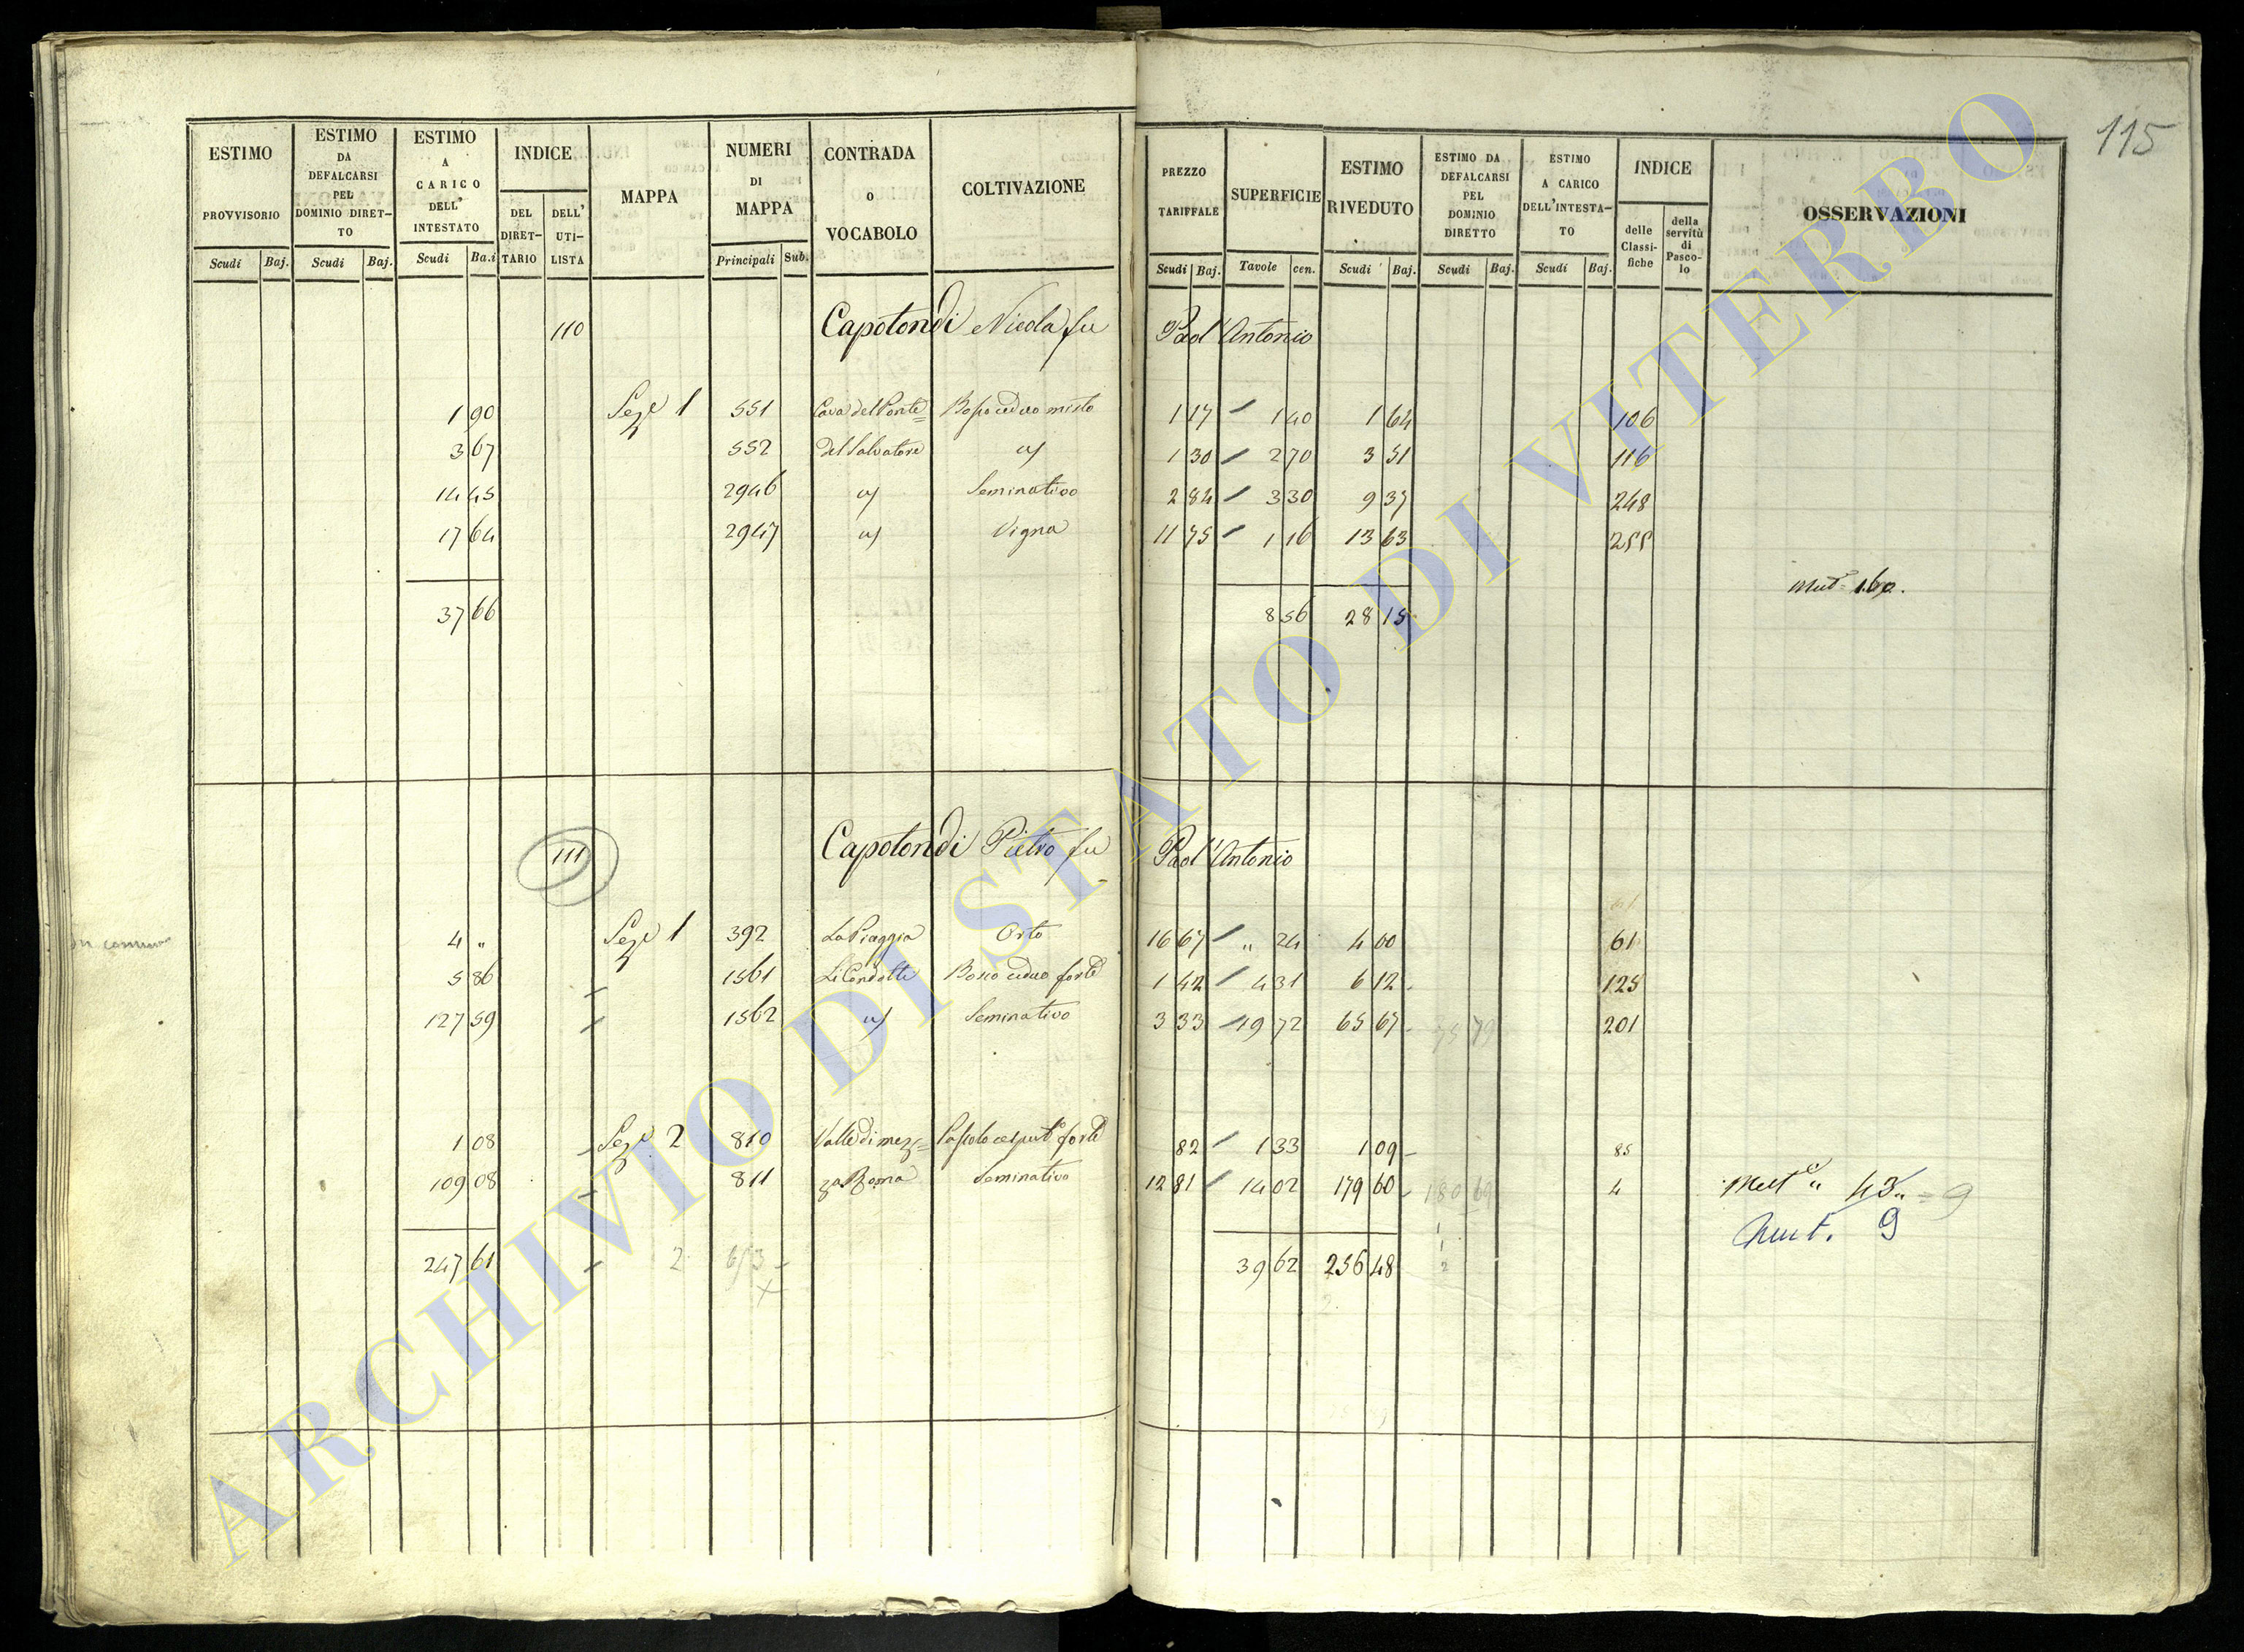 115
ESTIMO PROVVISORIO Scudi Baj.
ESTIMO DA DEFALCARSI PEL DOMINIO DIRET–TO Scudi Baj.
ESTIMO A CARICO DELL' INTESTATO Scudi Ba.i
INDICE DEL DIRET–TARIO DELL' UTI–LISTA
MAPPA
NUMERI DI MAPPA Principali Sub.
CONTRADA O VOCABOLO
COLTIVAZIONE
PREZZO TARIFFALE Scudi Baj.
SUPERFICIE Tavole cen.
ESTIMO RIVEDUTO Scudi Baj.
ESTIMO DA DEFALCARSI PEL DOMINIO DIRETTO Scudi Baj.
ESTIMO A CARICO DELL'INTESTA–TO Scudi Baj.
INDICE delle Classi-fiche della servitù di Pasco-lo
OSSERVAZIONI
110 Capotondi Nicola fu Paol'Antonio
1 90 Seze 1 551 Cava del Ponte Bosco ceduo misto 1 17 1 40 1 64 106
3 67 552 del Salvatore a/ 1 30 2 70 3 51 116
14 45 2946 a/ Seminativo 2 84 3 30 9 37 248
17 64 2947 a/ Vigna 11 75 1 16 13 63 255
Mut
37 66 8 56 28 15
111 Capotondi Pietro fu Paol'Antonio
4 " Seze 1 392 La Piaggia Orto 16 67 " 24 4 00 61
5 86 1561 Li Condotti Bosco ceduo forte 1 42 4 31 6 12 125
127 59 1562 a/ Seminativo 3 33 19 72 65 67 201
1 08 Seze 2 810 Valle di mez= Pascolo cesput forte 82 1 33 1 09 85
109 08 811 za Roma Seminativo 12 81 14 02 179 60 180 69 4 Mut " 43" = 9
Mut. 9
247 61 2 39 62 256 48
ARCHIVIO DI STATO DI VITERBO